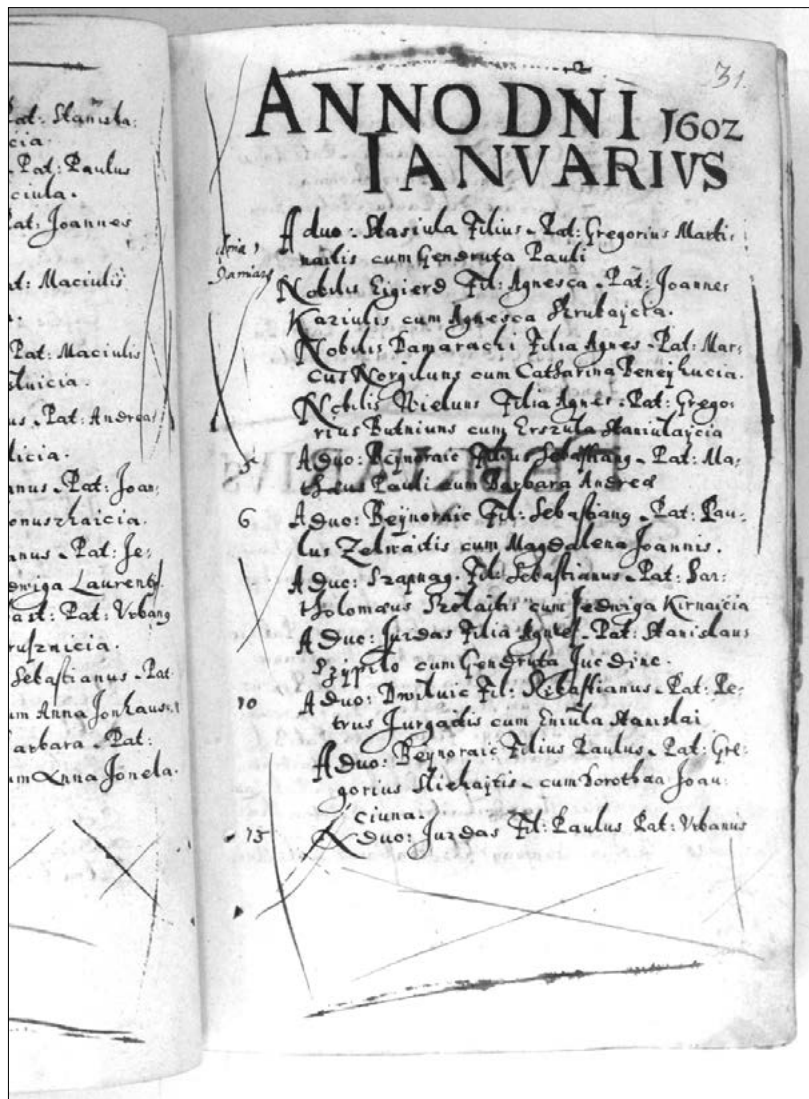 Pat: Stanisla:
cia.
Pat: Paulus
ciula.
Pat: Joannes
Pat: Maciulis
Pat: Maciulis
Pat: Andreas
licia.
anus Pat: Joan:
onuszhaicia.
anus Pat: Je:
edwiga Laurentÿ.
Pat: Vrbang
rusznicia.
Sebastianus Pat:
um Anna Jonhaus
arbara Pat:
um Anna Jonela.
31.
ANNO DNI 1602
IANVARIVS
Aduo: Stasiula Filius Pat: Gregorius Marti:
nailis cum Gendruta Pauli
Nobilis Eigierd Fil: Agnesca Pat: Joannes
Kaziulis cum Agnesca
Nobilis Damarachi Filia Agnes Pat: Mar:
cus Norgiluns cum Catharina
Nobilis Nieluns Filia Agnes Pat: Grego:
rius Butniuns cum Erszula Staniulaÿcia
5 Aduo: Beÿnoraic Filius Sebastiang Pat: Ma:
thæus Pauli cum Barbara Andreæ
6 Aduo: Beÿnoraic Fil: Sebastiang Pat: Pau:
lus Zelwaitis cum Magdalena Joannis.
Aduo: Szapnag. Fil: Sebastianus Pat: Bar:
tholomæus Szelaitis cum Jedwiga Kirnaicia
Aduo: Jurdas Filia Agnes Pat: Stanislaus
Szÿpilo cum Gendruta
10 Aduo: Dwiluic Fil: Sebastianus Pat: Pe:
trus Jurgaitis cum Eniula Stanislai
Aduo: Beÿnoraic Filius Paulus Pat: Gre:
gorius Michaÿtis cum Dorothæa Joan:
ciuna.
15 Aduo: Jurdas Fil: Paulus Pat: Vrbanus